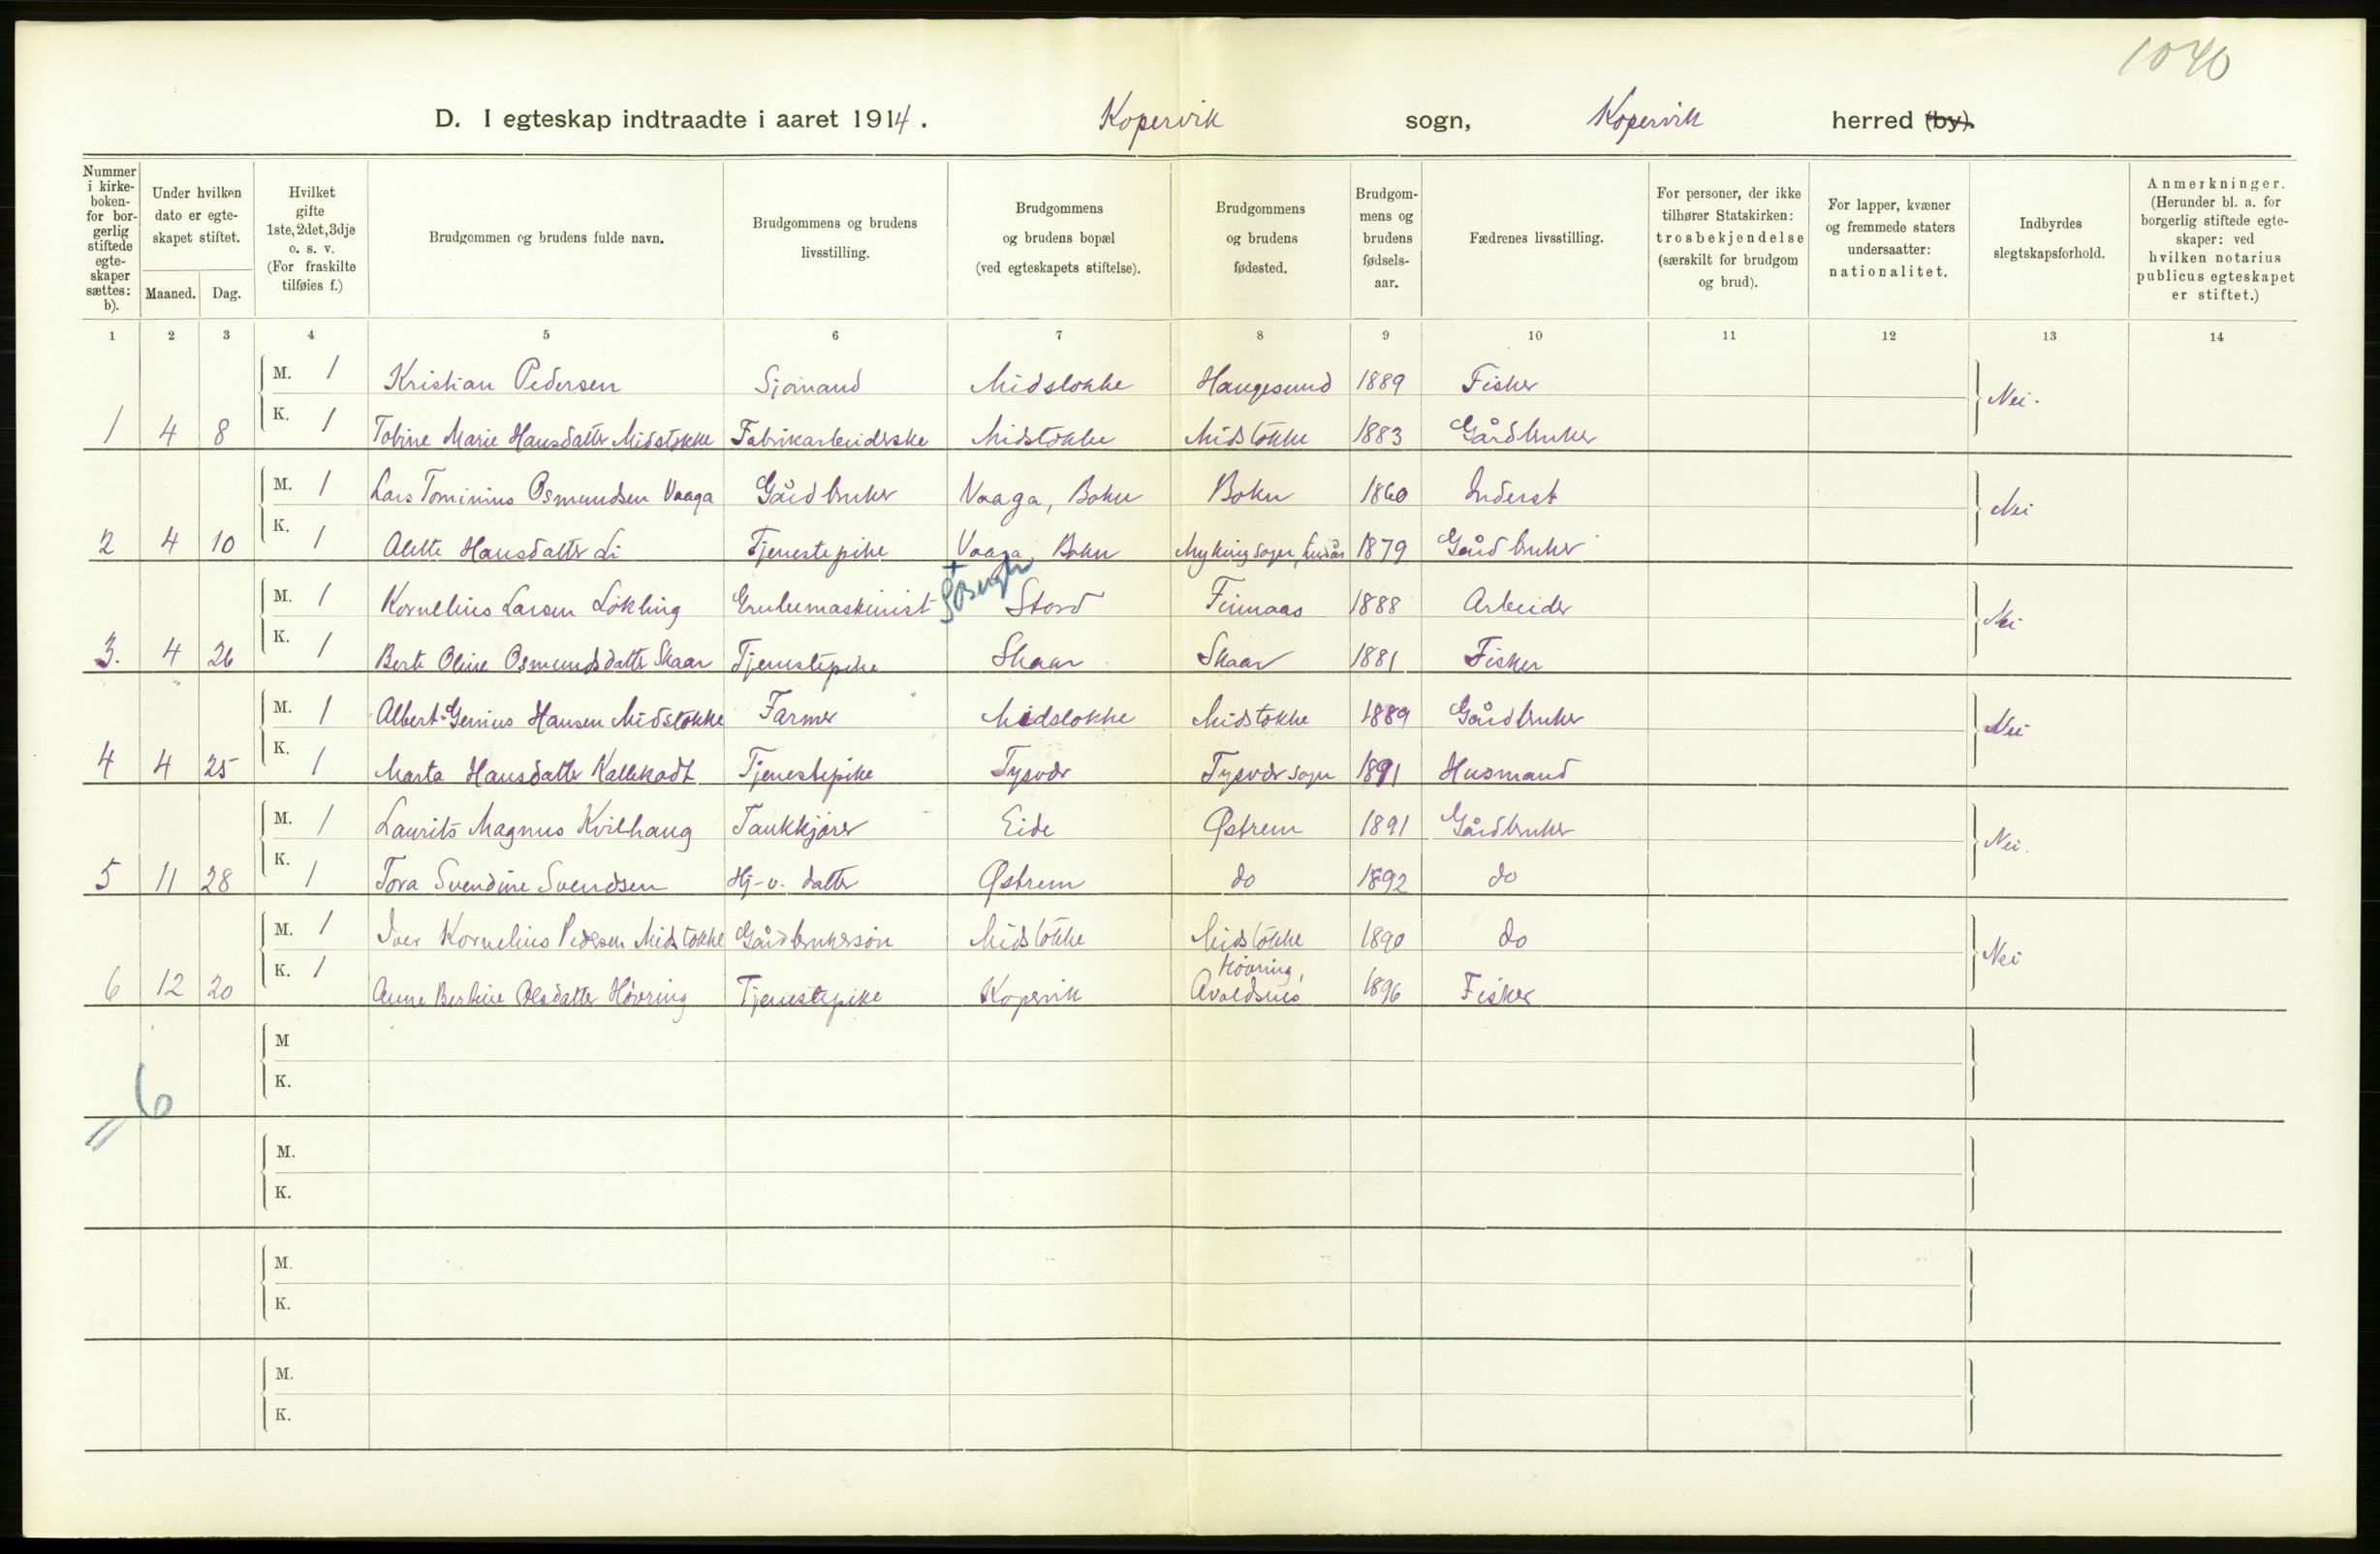 1040
D. I egteskap indtraadte i aaret 1914. Kopervik sogn, Kopervik herred (by).
Nummer i kirkeboken for borgerlig stiftede egteskaper sættes: b).
Under hvilken dato er egteskapet stiftet.
Maaned. Dag.
Hvilket gifte 1ste, 2det, 3dje o. s. v. (For fraskilte tilføies f.)
Brudgommen og brudens fulde navn.
Brudgommens og brudens livsstilling.
Brudgommens og brudens bopæl (ved egteskapets stiftelse).
Brudgommens og brudens fødested.
Brudgommens og brudens fødselsaar.
Fædrenes livsstilling.
For personer, der ikke tilhører Statskirken: trosbekjendelse (særskilt for brudgom og brud).
For lapper, kvæner og fremmede staters undersaatter: nationalitet.
Indbyrdes slegtskapsforhold.
Anmerkninger. (Herunder bl. a. for borgerlig stiftede egteskaper: ved hvilken notarius publicus egteskapet er stiftet.)
1 2 3 4 5 6 7 8 9 10 11 12 13 14
M. 1 Kristian Pedersen Sjømand Midstokke Haugesund 1889 Fisker Nei.
1 4 8 K. 1 Tobine Marie Hansdatter Midstokke Fabrikarbeiderske Midstokke Midstokke 1883 Gårdbruker
M. 1 Lars Tominius Osmundsen Vaaga Gårdbruker Vaaga, Bokn Bokn 1860 Inderst Nei
2 4 10 K. 1 Alette Hansdatter Li Tjenestepike Vaaga, Bokn Myking sogn, Lindås 1879 Gårdbruker
M. 1 Kornelius Larsen Løkling Grubemaskinist Stord Finnaas 1888 Arbeider Nei
3. 4 26 K. 1 Berte Oline Osmundsdatter Skaar Tjenestepike Skaar Skaar 1881 Fisker
M. 1 Albert Genius Hansen Midstokke Farmer Midstokke Midstokke 1889 Gårdbruker Nei
4 4 25 K. 1 Marta Hansdatter Kallekodt Tjenestepike Tysvær Tysvær sogn 1891 Husmand
M. 1 Laurits Magnus Kvilhaug Tankkjører Eide Østrem 1891 Gårdbruker Nei.
5 11 28 K. 1 Tora Svendine Svendsen Hj-v. datter Østrem do 1892 do
M. 1 Iver Kornelius Pedersen Midstokke Gårdbrukersøn Midstokke Midstokke 1890 do Nei
6 12 20 K. 1 Anne Bertine Olsdatter Høvring Tjenestepike Kopervik Høvring, Avaldsnes 1896 Fisker
M
K.
6
M.
K.
M.
K.
M.
K.